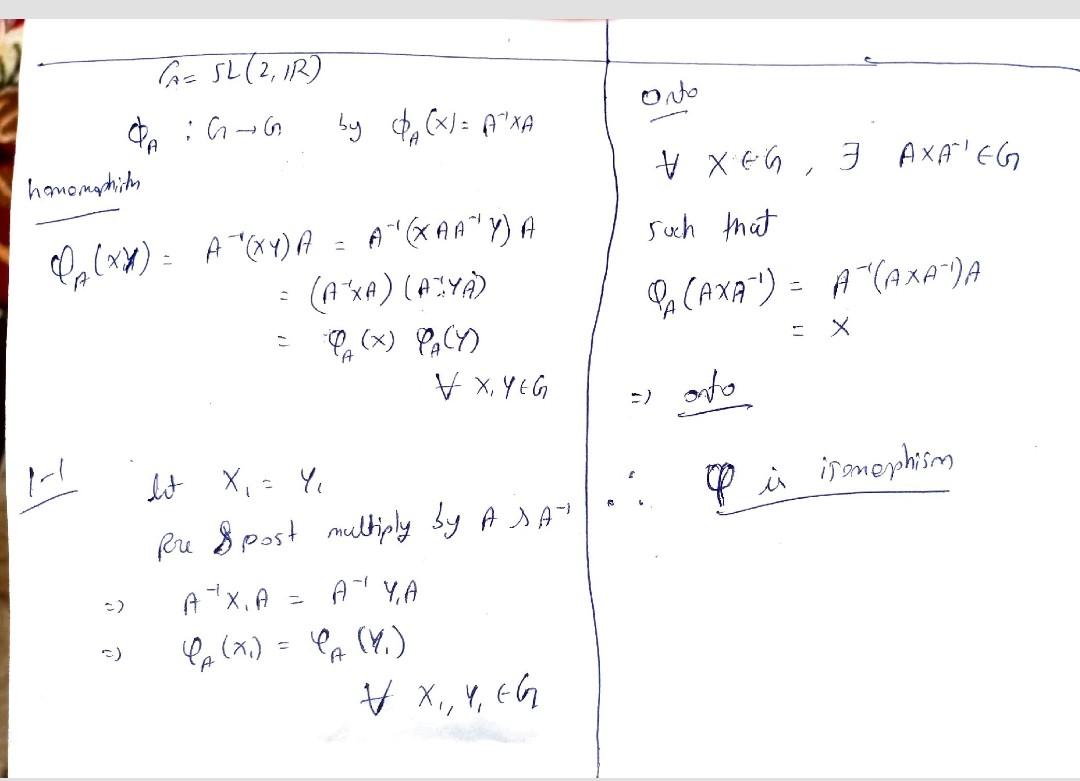 G = SL(2, IR)
ϕ_A : G → G by ϕ_A(X) = A⁻¹XA
homomophism
φ_A(XY) = A⁻¹(XY)A = A⁻¹(XAA⁻¹Y)A
= (A⁻¹XA)(A⁻¹YA)
= φ_A(X) φ_A(Y)
∀ X, Y ∈ G
1-1
let X₁ = Y₁
Pre & post multiply by A & A⁻¹
=) A⁻¹X₁A = A⁻¹Y₁A
=) φ_A(X₁) = φ_A(Y₁)
∀ X₁, Y₁ ∈ G
onto
∀ X ∈ G, ∃ AXA⁻¹ ∈ G
such that
φ_A(AXA⁻¹) = A⁻¹(AXA⁻¹)A
= X
=) onto
∴ φ is isomophism